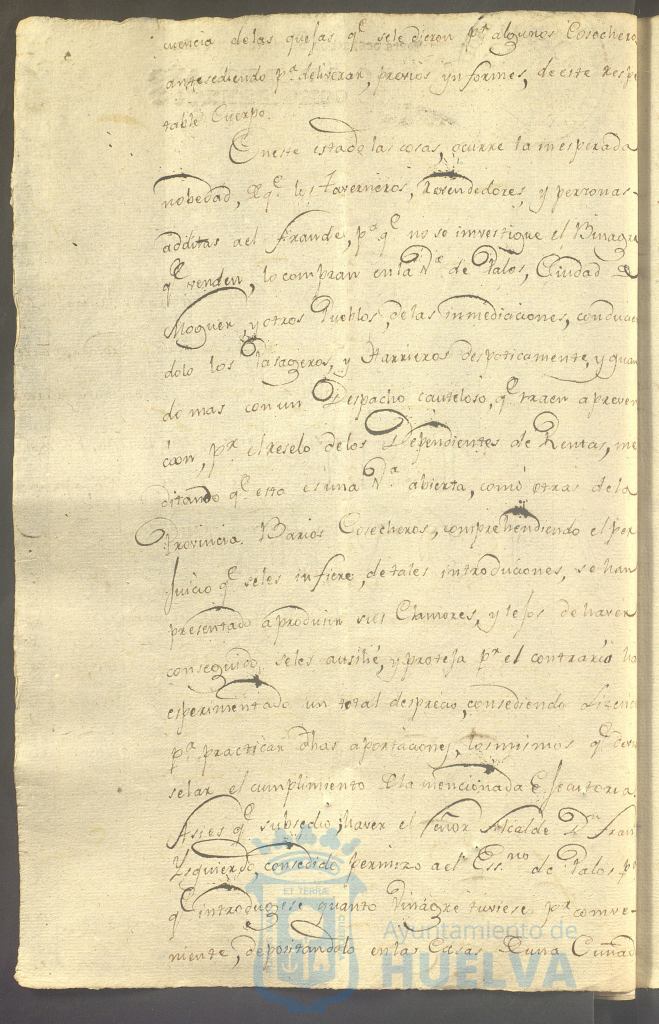 cuencia delas quejas q.e sele dieron p.r algunos Cosechero
antesediendo p.a deliverar, previos ynformes, de este Respe
table Cuerpo.
En este estado las cosas, ocurre la inesperada
nobedad, de q.e los Taverneros, Revendedores, y personas
additas ael fraude, p.a q.e no se imvestigue el Binagre
q.e venden, lo compran en la V.a de Palos, Ciudad de
Moguer, y otros Pueblos, de las inmediaciones, conducien
dolo los Pasageros, y Harrieros despoticamente, y quan
do mas con un Despacho cauteloso, q.e traen a preven
cion, p.r el reselo de los Dependientes de Rentas, me
ditando q.e esta es una V.a abierta, como otras de la
Provincia. Barios Cosecheros, comprehendiendo el per
juicio q.e seles infiere, de tales introduciones, se han
presentado a producir sus Clamores, y lejos de haver
conseguido, seles ausilie, y proteja p.r el contrario ha
esperimentado un total desprecio, consediendo Lizenc
p.a practicar dhas aportaciones, los mismos q.e deven
selar el cumplimiento de la mencionada Ejecutoria.
Asi es q.e subsedio, haver el Señor Alcalde D.n Fran
Yzquierdo, consedido permizo a el Ess.no de Palos p.a
q.e introdugese quanto Vinagre tuviese p.r comve-
niente, depositandolo en las Casas de una Cuñad
ET TERRÆ
Ayuntamiento de
HUELVA